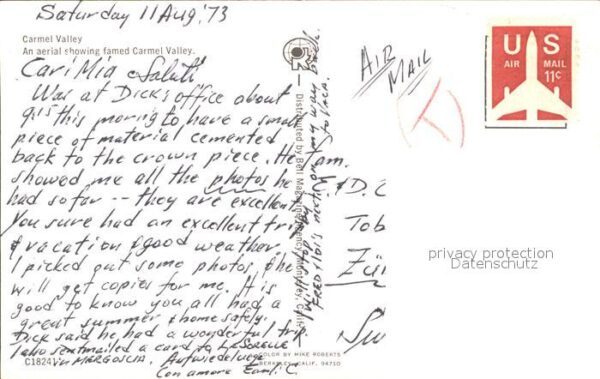 Saturday 11 Aug, '73
Carmel Valley
An aerial showing famed Carmel Valley.
Cari Mia e Saluti
Was at Dick's office about
9:15 this morning to have a small
piece of material cemented
back to the crown piece. He
showed me all the photos he
had so far -- they are excellent.
You sure had an excellent trip
& vacation & good weather.
I picked out some photos, & he
will get copies for me. It is
good to know you all had a
great summer & home safely.
Dick said he had a wonderful trip.
I also sent mailed a card to Le Sorelle
in Mergoscia.
Con amore Emil. C.
C18241
COLOR BY MIKE ROBERTS
BERKELEY, CALIF. 94710
Distributed by Bell Magazine Agency, Monterey, Calif.
I will stop by
Fred & Loi's next
on my way back
AIR
MAIL
T
US
AIR MAIL
11c
am.
E. & D. C
Tob
Zür
Sw
privacy protection
Datenschutz